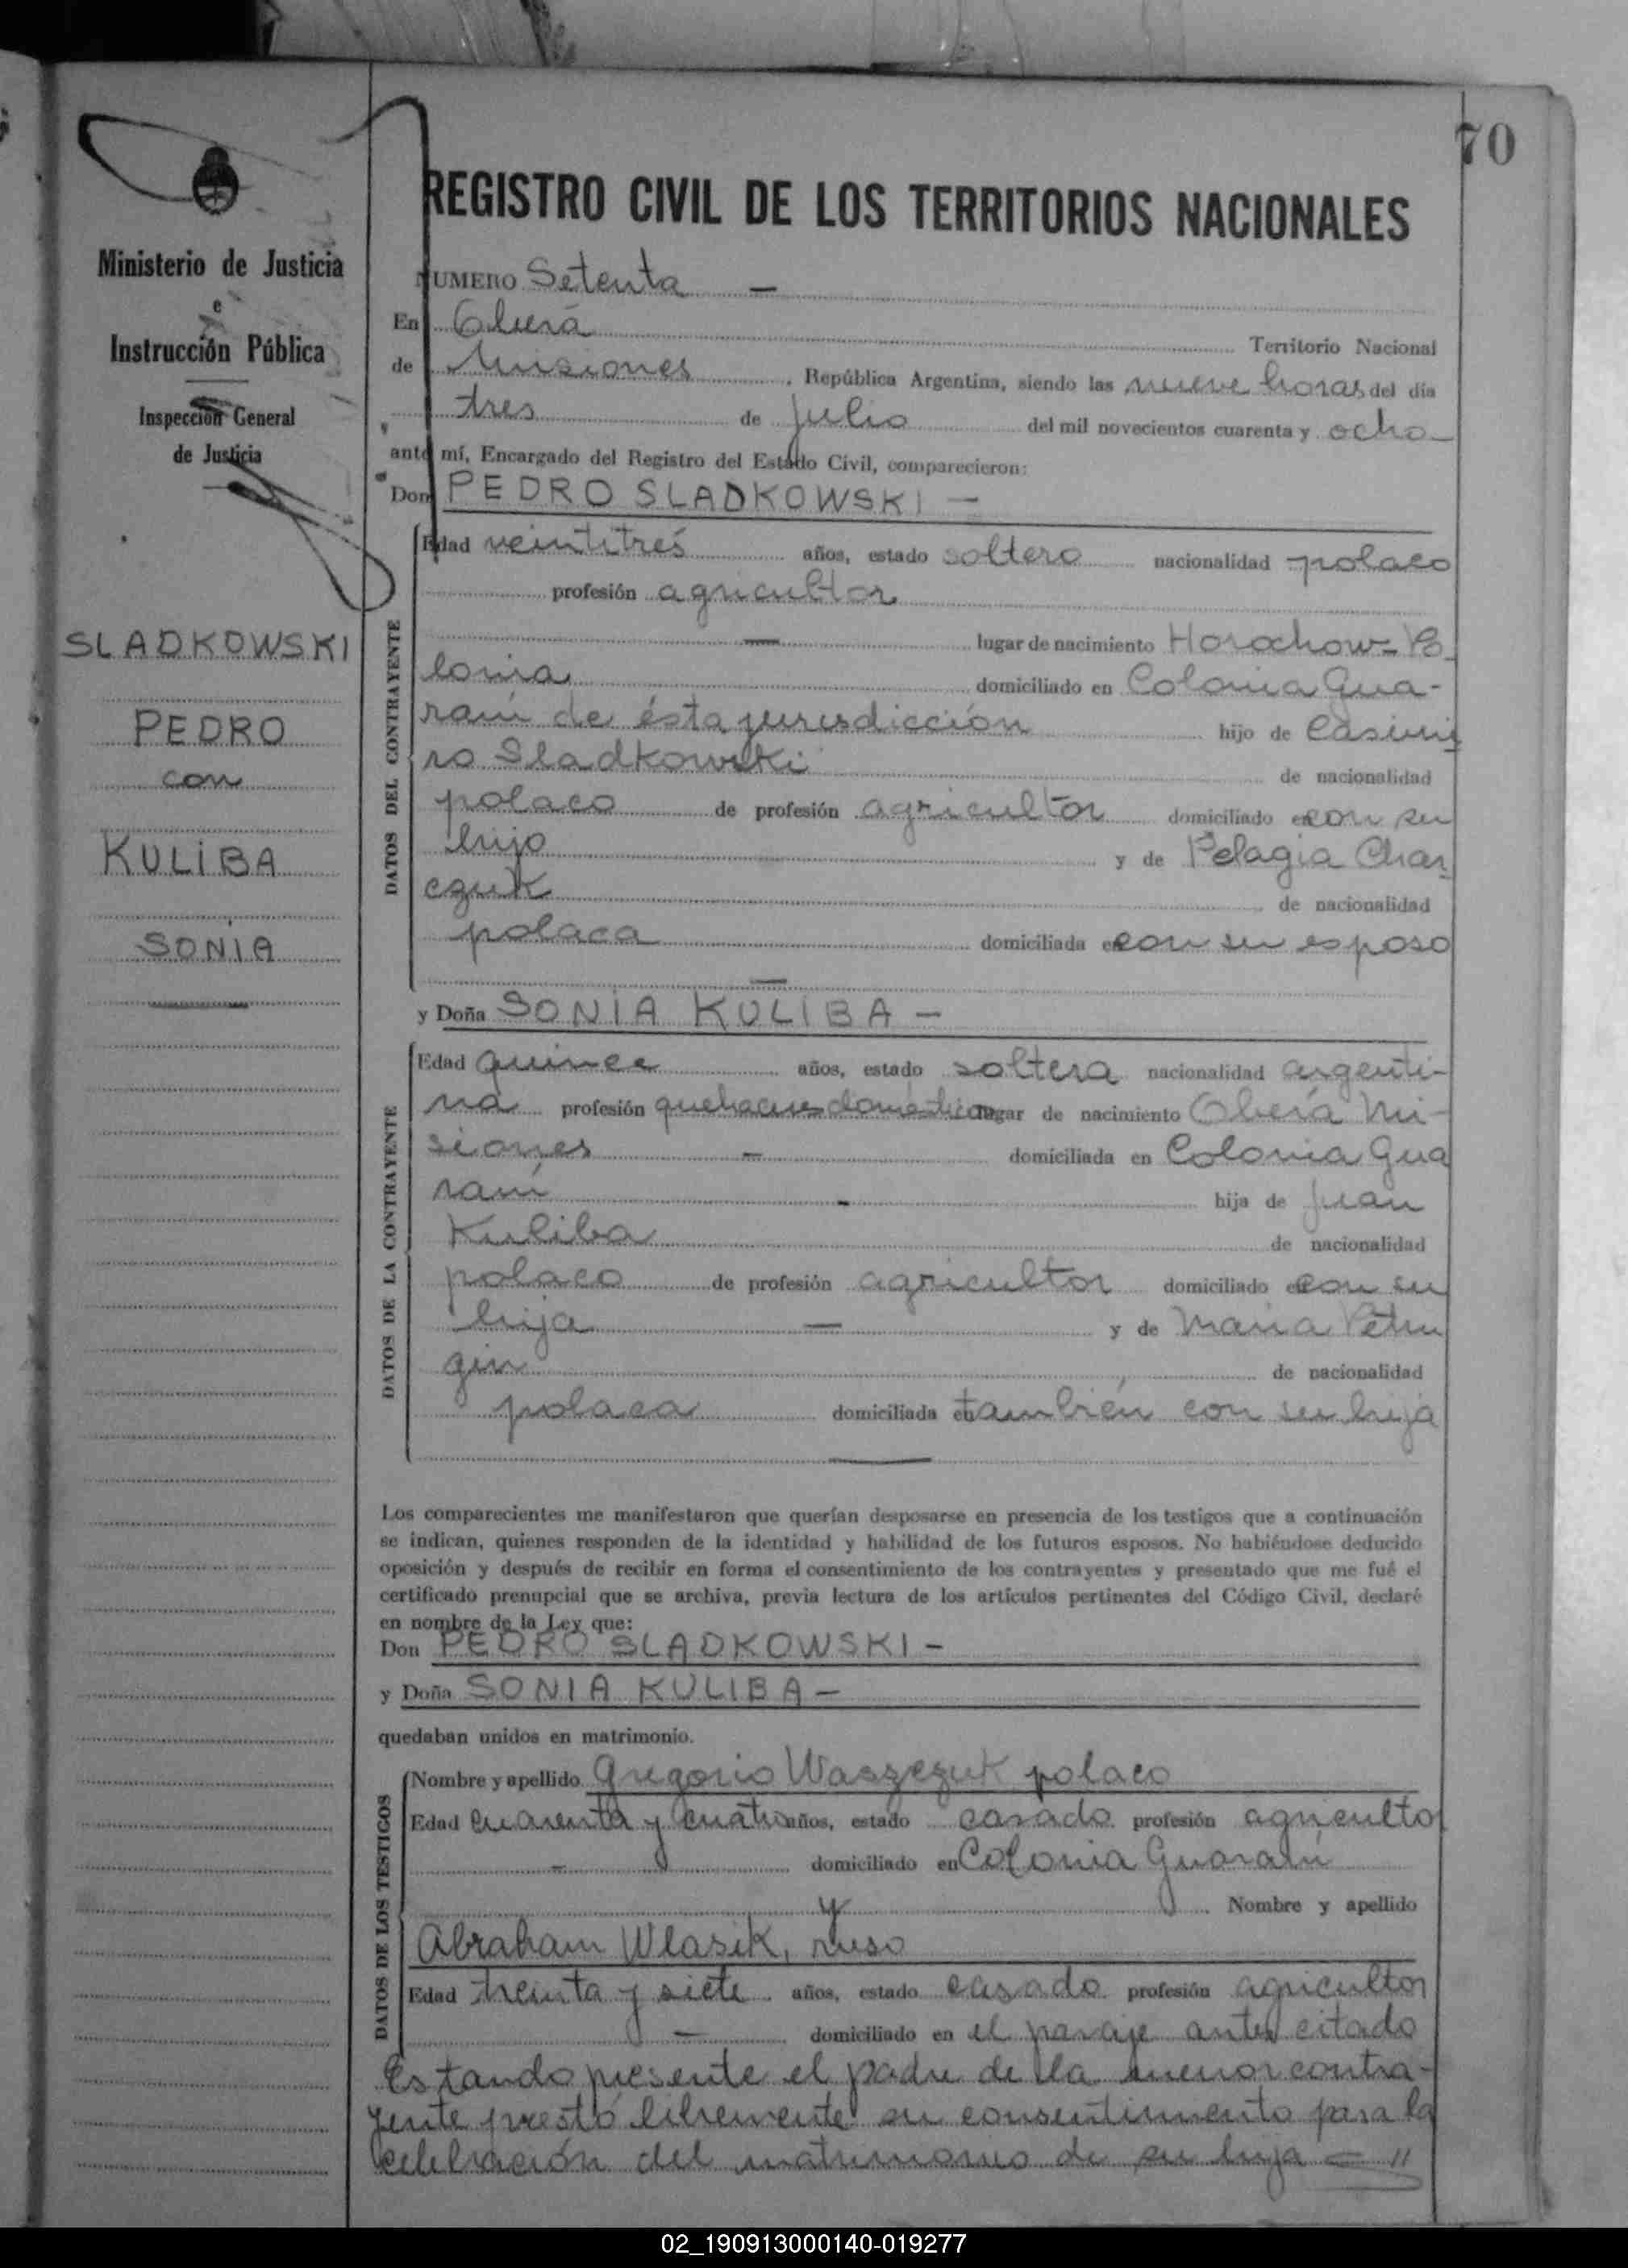 70
Ministerio de Justicia
e
Instrucción Pública
Inspección General
de Justicia
SLADKOWSKI
PEDRO
con
KULIBA
SONIA
REGISTRO CIVIL DE LOS TERRITORIOS NACIONALES
NUMERO Setenta —
En Oberá Territorio Nacional
de Misiones, República Argentina, siendo las nueve horas del día
tres de julio del mil novecientos cuarenta y ocho
ante mí, Encargado del Registro del Estado Civil, comparecieron:
Don PEDRO SLADKOWSKI —
DATOS DEL CONTRAYENTE
Edad veintitrés años, estado soltero nacionalidad polaco
profesión agricultor
— lugar de nacimiento Horochow - Po
lonia domiciliado en Colonia Gua-
raní de ésta jurisdicción hijo de Casimi
ro Sladkowski de nacionalidad
polaco de profesión agricultor domiciliado en con su
hijo y de Pelagia Char
czuk de nacionalidad
polaca domiciliada en con su esposo
—
y Doña SONIA KULIBA —
DATOS DE LA CONTRAYENTE
Edad quince años, estado soltera nacionalidad argenti-
na profesión quehaceres domésticos lugar de nacimiento Oberá Mi-
siones — domiciliada en Colonia Gua
raní - hija de Juan
Kuliba de nacionalidad
polaco de profesión agricultor domiciliado en con su
hija — y de María Petru
gin de nacionalidad
polaca domiciliada en también con su hija
—
Los comparecientes me manifestaron que querían desposarse en presencia de los testigos que a continuación
se indican, quienes responden de la identidad y habilidad de los futuros esposos. No habiéndose deducido
oposición y después de recibir en forma el consentimiento de los contrayentes y presentado que me fué el
certificado prenupcial que se archiva, previa lectura de los artículos pertinentes del Código Civil, declaré
en nombre de la Ley que:
Don PEDRO SLADKOWSKI —
y Doña SONIA KULIBA —
quedaban unidos en matrimonio.
DATOS DE LOS TESTIGOS
Nombre y apellido Gregorio Waszczuk polaco
Edad cuarenta y cuatro años, estado casado profesión agricultor
- domiciliado en Colonia Guaraní
y Nombre y apellido
Abraham Wlasik, ruso
Edad treinta y siete años, estado casado profesión agricultor
— domiciliado en el paraje antes citado
Estando presente el padre de la menor contra-
yente prestó libremente su consentimiento para la
celebración del matrimonio de su hija = "
02_190913000140-019277